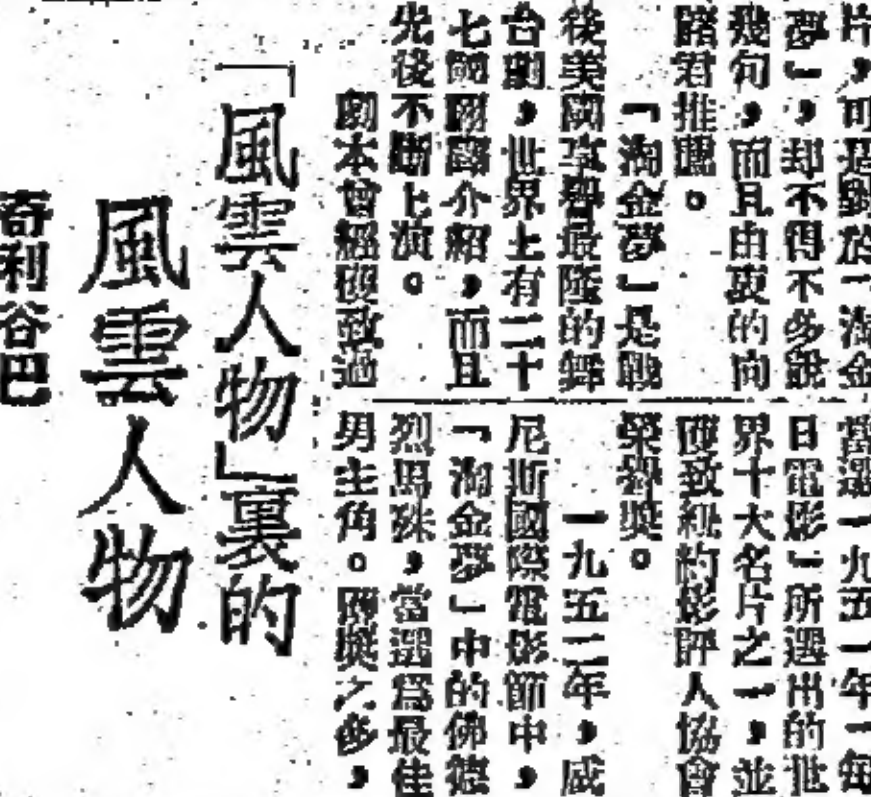 片，可是對於「淘金
夢」，却不得不多說
幾句，而且由衷的向
諸君推薦。
「淘金夢」是戰
後美國享譽最隆的舞
台劇，世界上有二十
七個國介紹，而且
先後不斷上演。
劇本曾經獲致過
當選一九五一年「每
日電影」所選出的世
界十大名片之一，並
獲致紐約影評人協會
榮譽獎。
一九五二年，威
尼斯國際電影節中，
「淘金夢」中的佛德
烈馬殊，當選爲最佳
男主角。獲獎之多，
「風雲人物」裏的
風雲人物
奇利谷巴